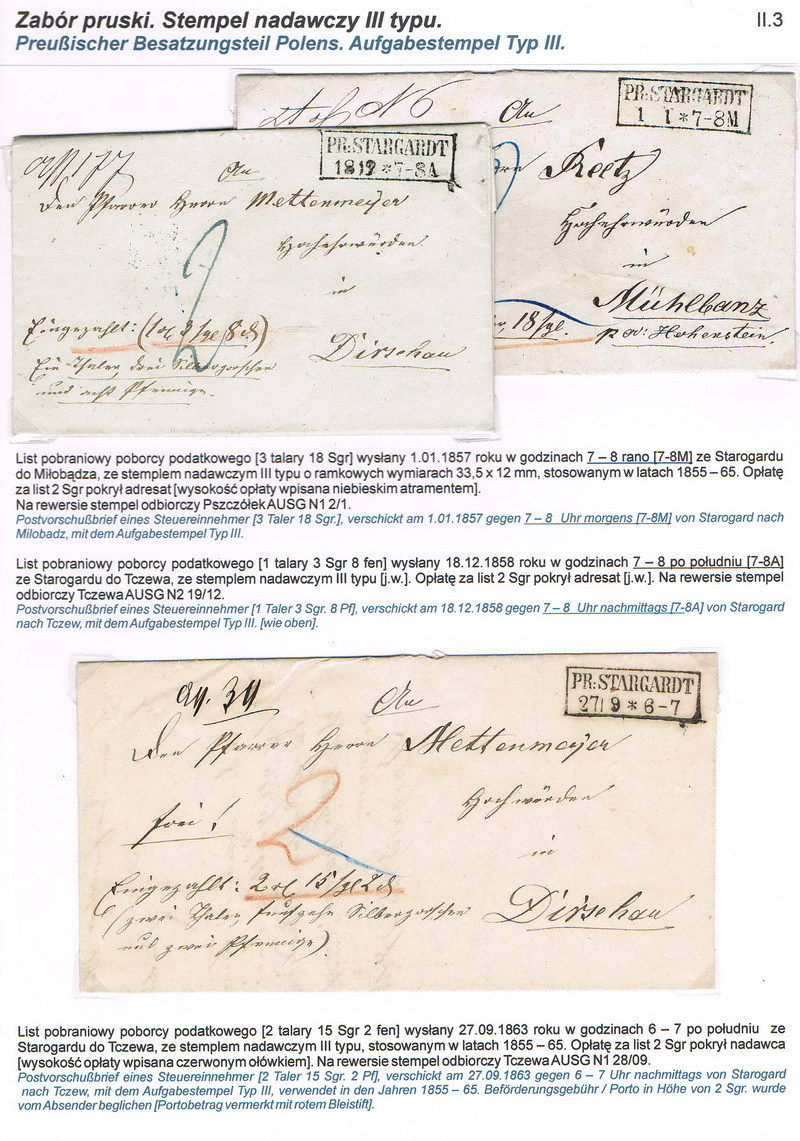 Zabór pruski. Stempel nadawczy III typu.
II.3
Preußischer Besatzungsteil Polens. Aufgabestempel Typ III.
An
PR:STARGARDT
1 1 *7-8M
Reetz
Hochehrwürden
in
Mühlbanz
18 sgl.
p. Hohenstein.
177
An
PR:STARGARDT
1812 *7-8A
Den Pfarrer Herrn Mettenmeyer
Hochehrwürden
in
2
Eingezahlt: (1 3 sgl 8 d)
Dirschau
Ein Thaler, drei Silbergroschen
und acht Pfennige.
List pobraniowy poborcy podatkowego [3 talary 18 Sgr] wysłany 1.01.1857 roku w godzinach 7 – 8 rano [7-8M] ze Starogardu
do Miłobądza, ze stemplem nadawczym III typu o ramkowych wymiarach 33,5 x 12 mm, stosowanym w latach 1855 – 65. Opłatę
za list 2 Sgr pokrył adresat [wysokość opłaty wpisana niebieskim atramentem].
Na rewersie stempel odbiorczy Pszczółek AUSG N1 2/1.
Postvorschußbrief eines Steuereinnehmer [3 Taler 18 Sgr.], verschickt am 1.01.1857 gegen 7 – 8 Uhr morgens [7-8M] von Starogard nach
Milobadz, mit dem Aufgabestempel Typ III.
List pobraniowy poborcy podatkowego [1 talary 3 Sgr 8 fen] wysłany 18.12.1858 roku w godzinach 7 – 8 po południu [7-8A]
ze Starogardu do Tczewa, ze stemplem nadawczym III typu [j.w.]. Opłatę za list 2 Sgr pokrył adresat [j.w.]. Na rewersie stempel
odbiorczy Tczewa AUSG N2 19/12.
Postvorschußbrief eines Steuereinnehmer [1 Taler 3 Sgr. 8 Pf], verschickt am 18.12.1858 gegen 7 – 8 Uhr nachmittags [7-8A] von Starogard
nach Tczew, mit dem Aufgabestempel Typ III. [wie oben].
An
PR:STARGARDT
27 9 * 6-7
Den Pfarrer Herrn Mettenmeyer
Hochwürden
frei!
2
in
Eingezahlt: 2 15 sgl 2 d
Dirschau
(zwei Thaler, funfzehn Silbergroschen
und zwei Pfennige)
List pobraniowy poborcy podatkowego [2 talary 15 Sgr 2 fen] wysłany 27.09.1863 roku w godzinach 6 – 7 po południu ze
Starogardu do Tczewa, ze stemplem nadawczym III typu, stosowanym w latach 1855 – 65. Opłatę za list 2 Sgr pokrył nadawca
[wysokość opłaty wpisana czerwonym ołówkiem]. Na rewersie stempel odbiorczy Tczewa AUSG N1 28/09.
Postvorschußbrief eines Steuereinnehmer [2 Taler 15 Sgr. 2 Pf], verschickt am 27.09.1863 gegen 6 – 7 Uhr nachmittags von Starogard
nach Tczew, mit dem Aufgabestempel Typ III, verwendet in den Jahren 1855 – 65. Beförderungsgebühr / Porto in Höhe von 2 Sgr. wurde
vom Absender beglichen [Portobetrag vermerkt mit rotem Bleistift].